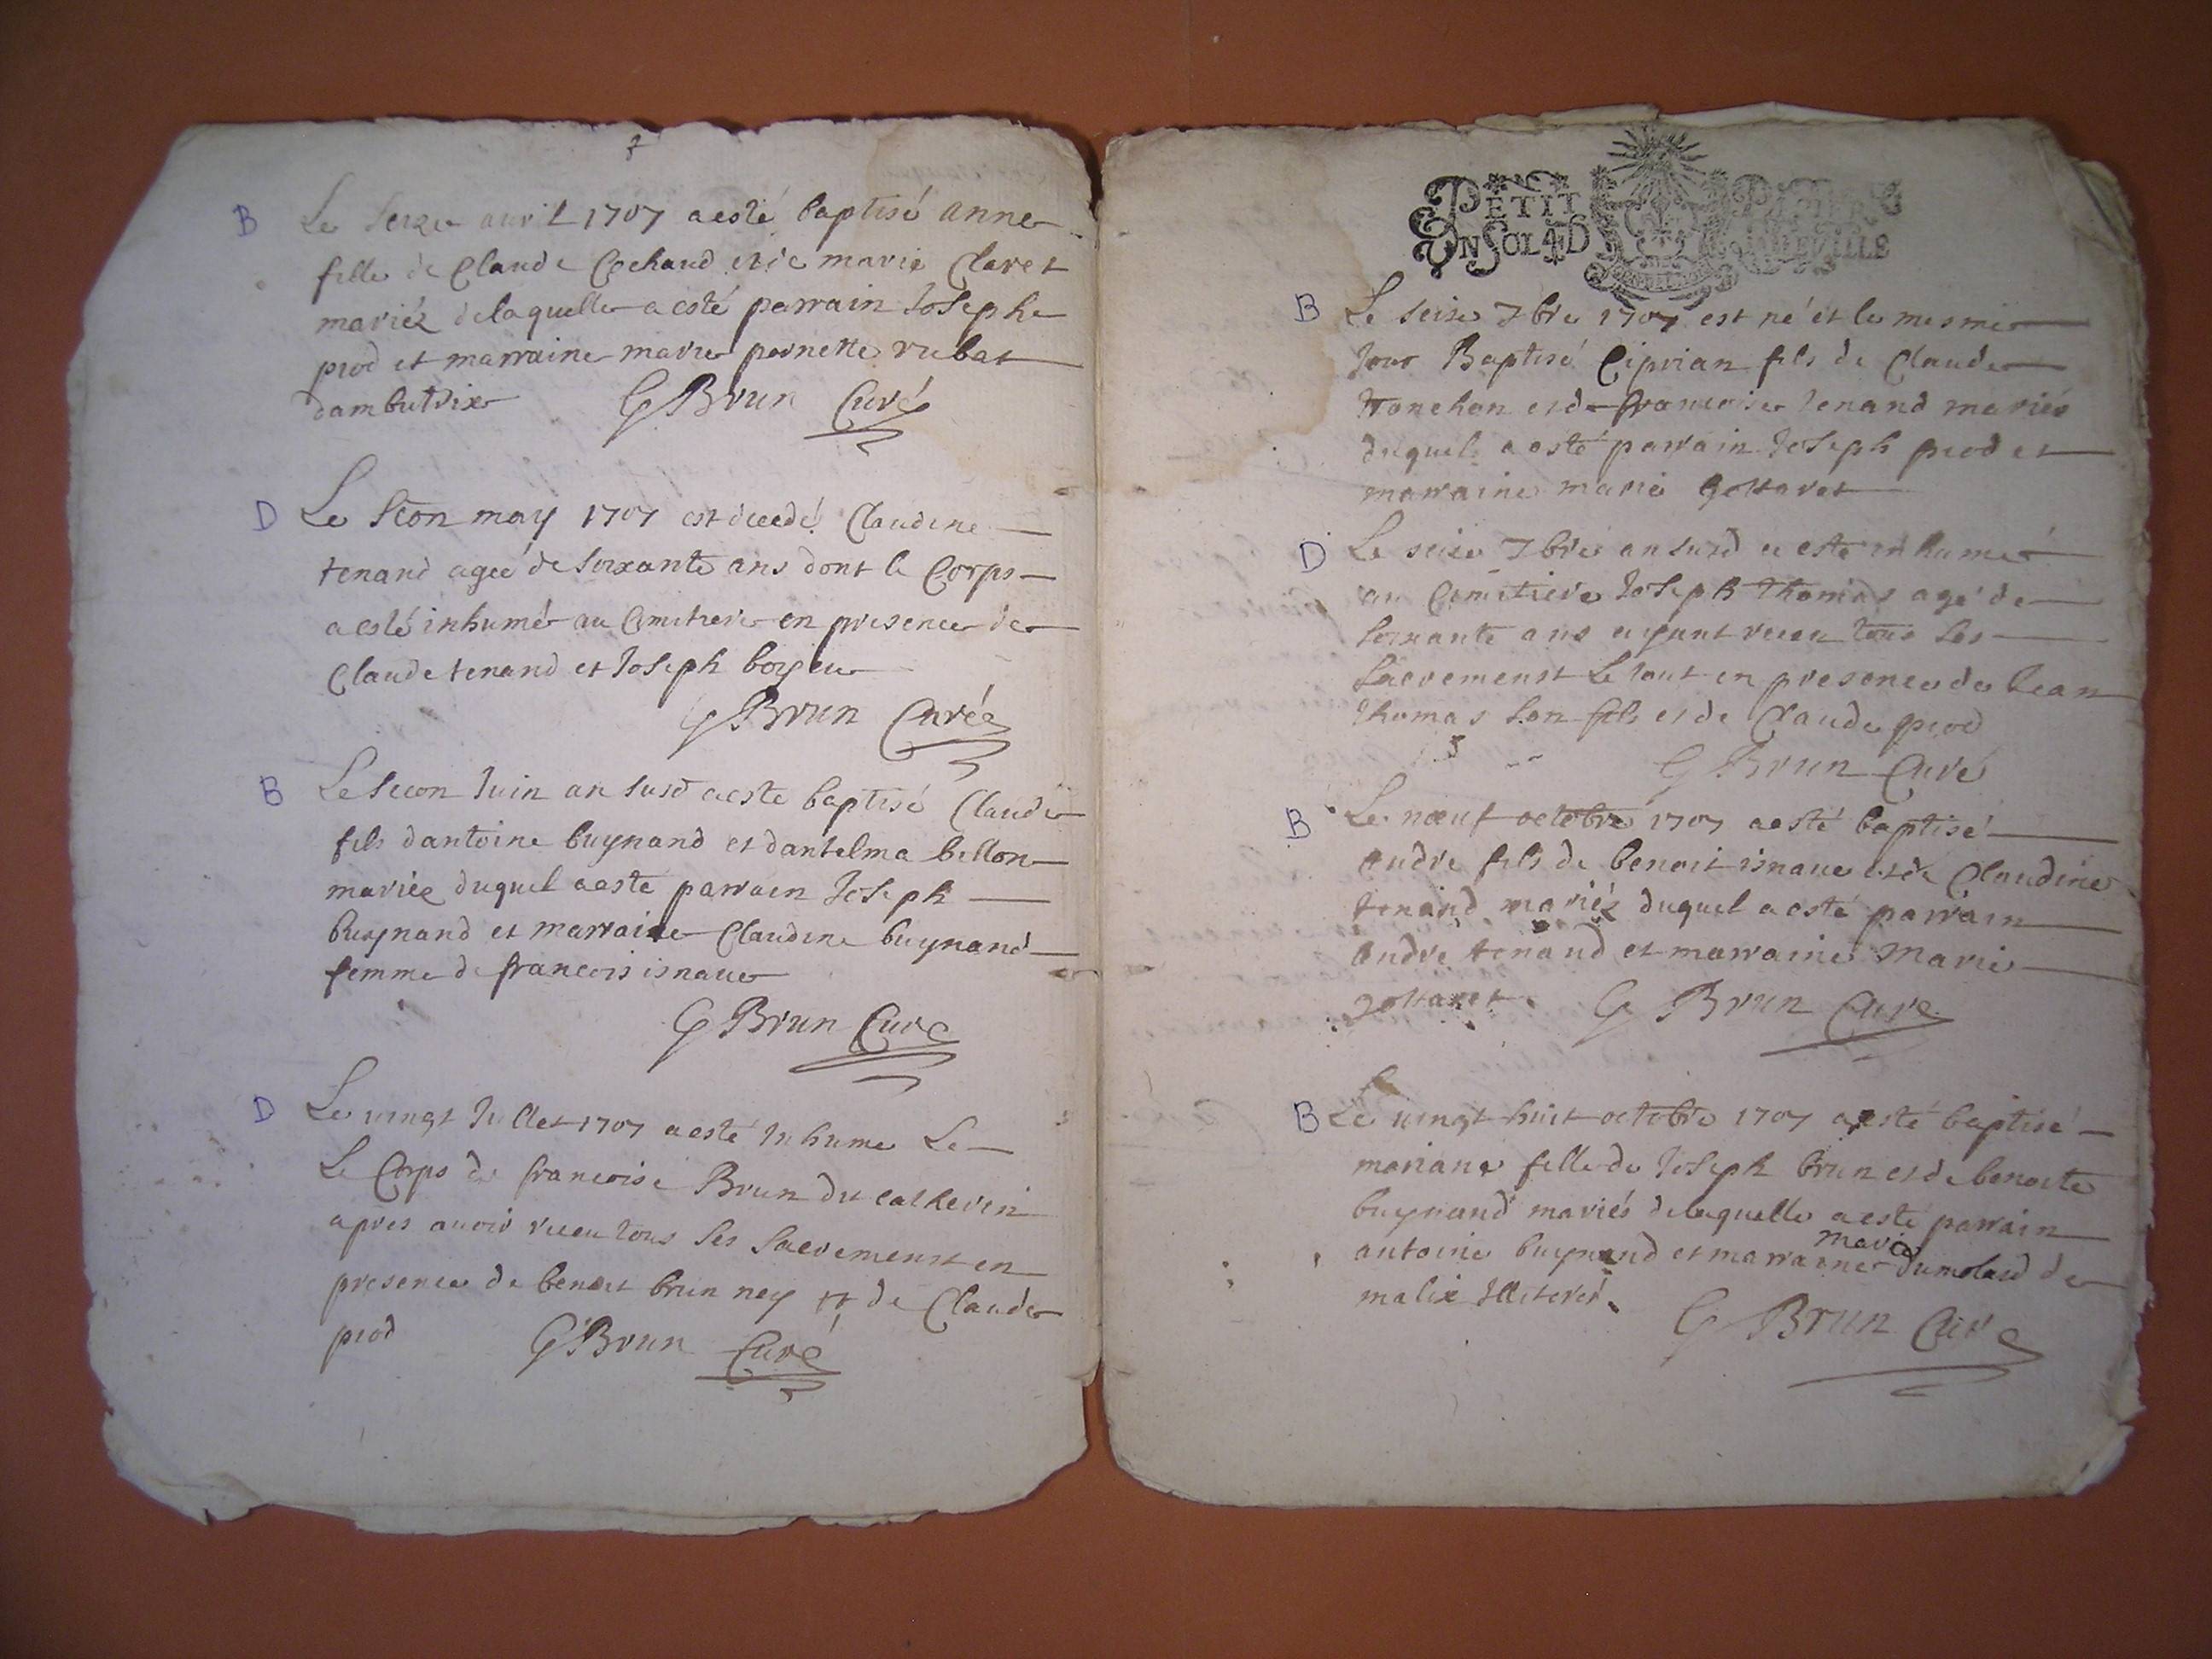 7
B Le Seize avril 1707 a esté baptisé anne
fille de Claude Cochand et de marie Claret
mariéz delaquelle a esté parrain Josephe
prod et marraine marie pernette rubat
dambutrix G Brun Curé
D Le Secon may 1707 est decedé Claudine
tenand agée de soixante ans dont le Corps
a esté inhumé au Cimitiere en presence de
Claude tenand et Joseph boyeu
G Brun Curé
B Le Secon Juin an susd a esté baptisé Claude
fils dantoine buynand et dantelma billon
mariéz duquel a esté parrain Joseph
buynand et marraine Claudine buynand
femme de francois isnaue
G Brun Curé
D Le vingt Juillet 1707 a esté Inhumé Le
Le Corps de francoise Brun du catherin
apres avoir receu tous ses sacrements en
presence de benoit brun ney et de Claude
prod G Brun Curé
PETIT PAPIER
UN SOL 4 D LA FEVILLE
B Le seize 7bre 1707 est né et le mesme
Jour Baptisé Ciprian fils de Claude
tronchon et de francoise tenand mariés
duquel a esté parrain Joseph prod et
marraine marie gottaret
D Le seize 7bre an susd a esté inhumé
au Cimitiere Joseph thomas agé de
soixante ans ayant receu tous ses
sacrements Le tout en presence de Jean
thomas son fils et de Claude prod
G Brun Curé
B Le neuf octobre 1707 a esté baptisé
andre fils de benoit isnaue et de Claudine
tenand mariéz duquel a esté parrain
andre tenand et marraine Marie
gottaret G Brun Curé
B Le vingt huit octobre 1707 a esté baptisé
mariane fille de Joseph brun et de benoite
buynand mariés delaquelle a esté parrain
antoine buynand et marraine marie dumolard de
malix Illiterés G Brun Curé